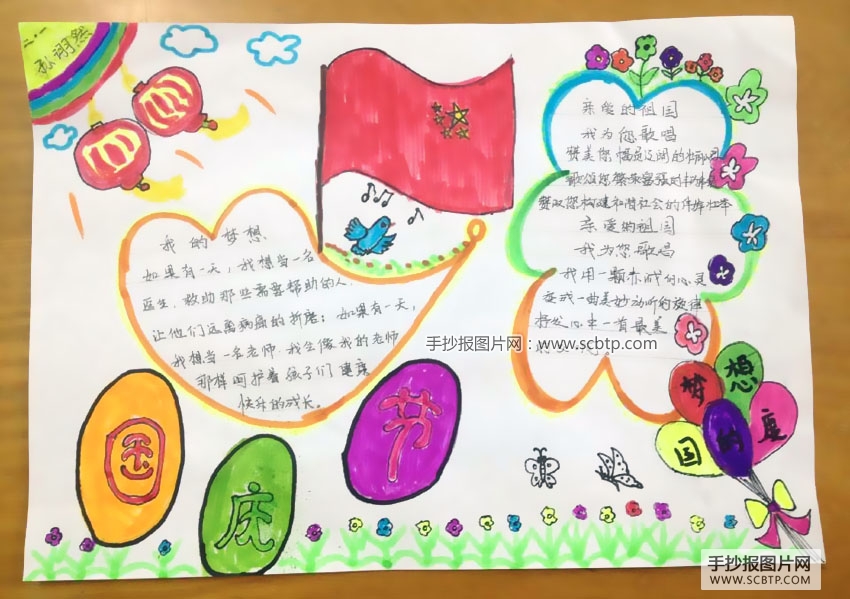 二.一
孙翊然
我的梦想
如果有一天，我想当一名
医生，救助那些需要帮助的人，
让他们远离病痛的折磨；如果有一天，
我想当一名老师，我会像我的老师
那样呵护着孩子们健康
快乐的成长。
亲爱的祖国
我为您歌唱
赞美您幅员辽阔的
歌颂您繁荣富强的
赞叹您构建和谐社会的伟岸壮举
亲爱的祖国
我为您歌唱
我用一颗赤诚的心灵
变成一曲美妙动听的旋律
抒发心中一首最美
手抄报图片网：www.scbtp.com
国庆节
梦想
国的度
手抄报图片网
WWW.SCBTP.COM